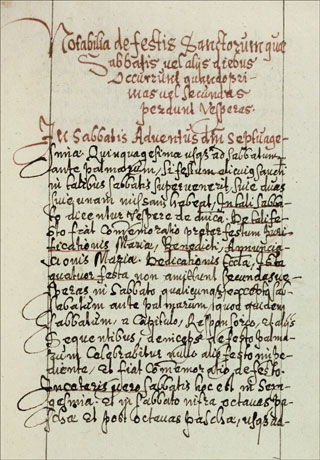 Notabilia de festis Sanctorum quæ
Sabbatis vel alijs diebus
Occurrunt quando pri-
mas vel secundas
perdunt Vesperas.
In Sabbatis Adventus dñi Septuage-
sima Quinquagesima usq̃ ad sabbatum
ante palmarum, si festum alicuius sancti
in talibus sabbatis supervenerit, sive duas
sive unam missam habeat, In tali sabba-
to dicentur vespere de dñica. De tali fe-
sto fiat Comemoratio preter festum Puri-
ficationis Mariæ, Benedicti, Annuncia-
cionis Mariæ. Dedicationis Ecclæ, Ista
quatuor festa non amittunt secundas ve-
peras in Sabbato qualicunq̃ excepto sab-
sabatum ante palmarum, quod quidem
Sabbatum, a Capitulo, Responsorio, et alijs
Sequentibus, deniceps de festo palma-
rum Celebrabitur nullo alio festo inpe-
diente, et fiat Comemoratio de festo.
In ceteris vero sabbatis hoc est in Sexa-
gesima. et in Sabbato infra octavas Pa-
schæ et post octavas paschæ, usq̃ ad